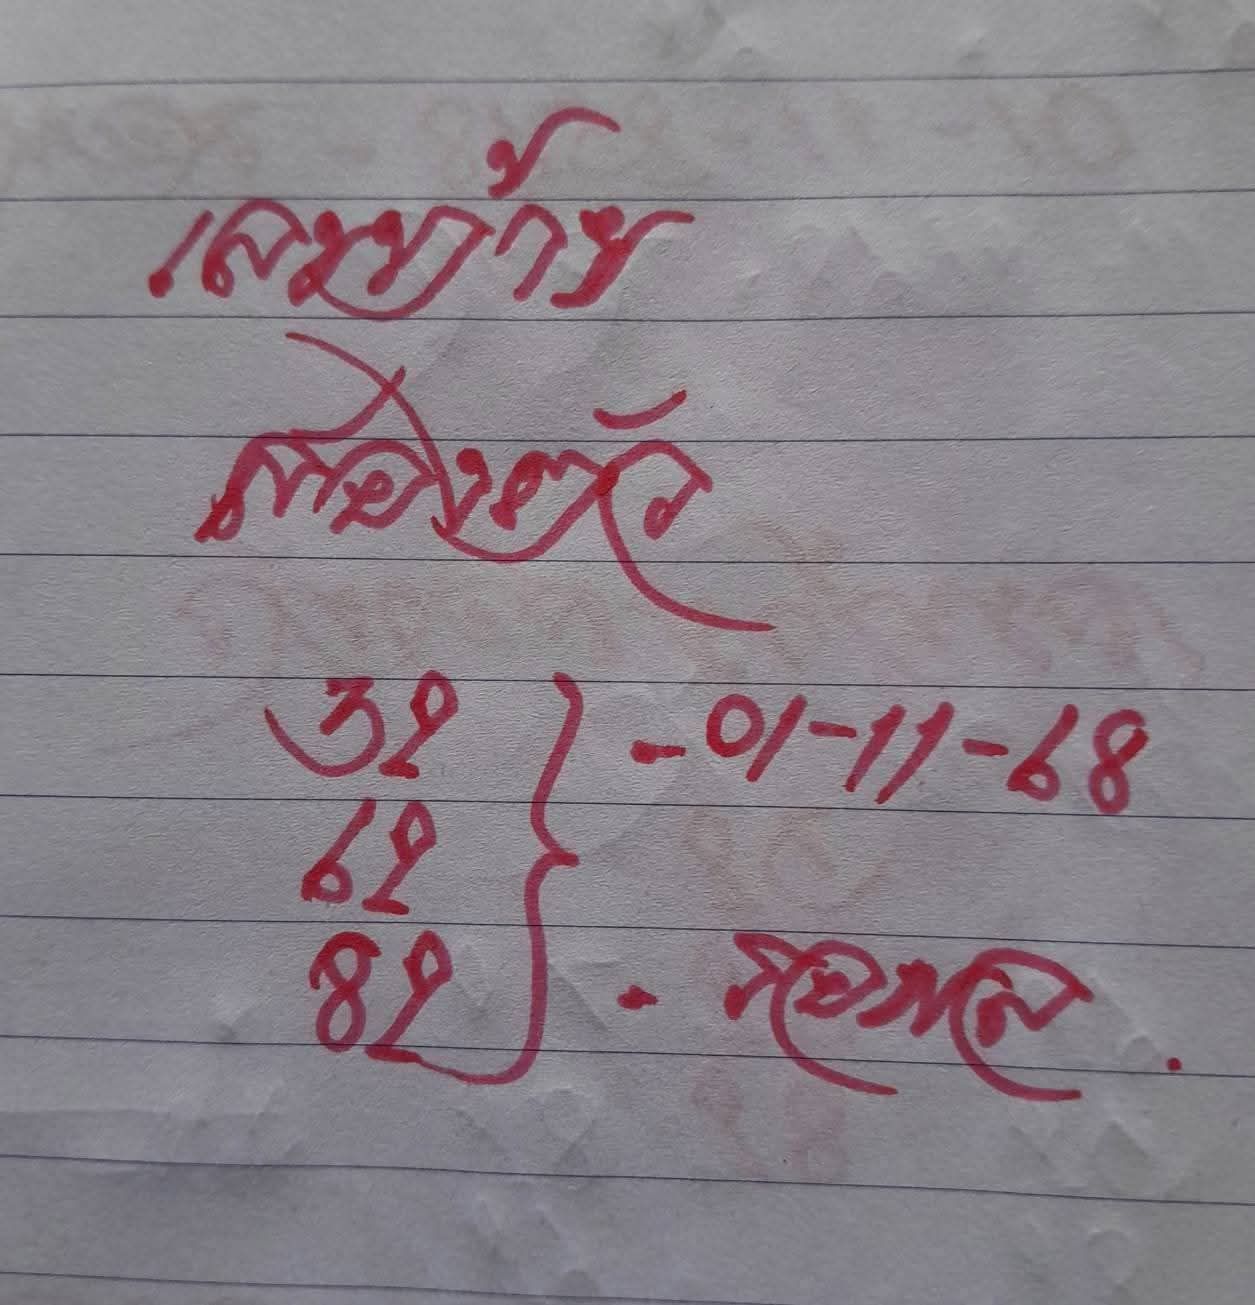 เลขท้าย
สองตัว
32 } - 01-11-68
62
82 - รอผล.